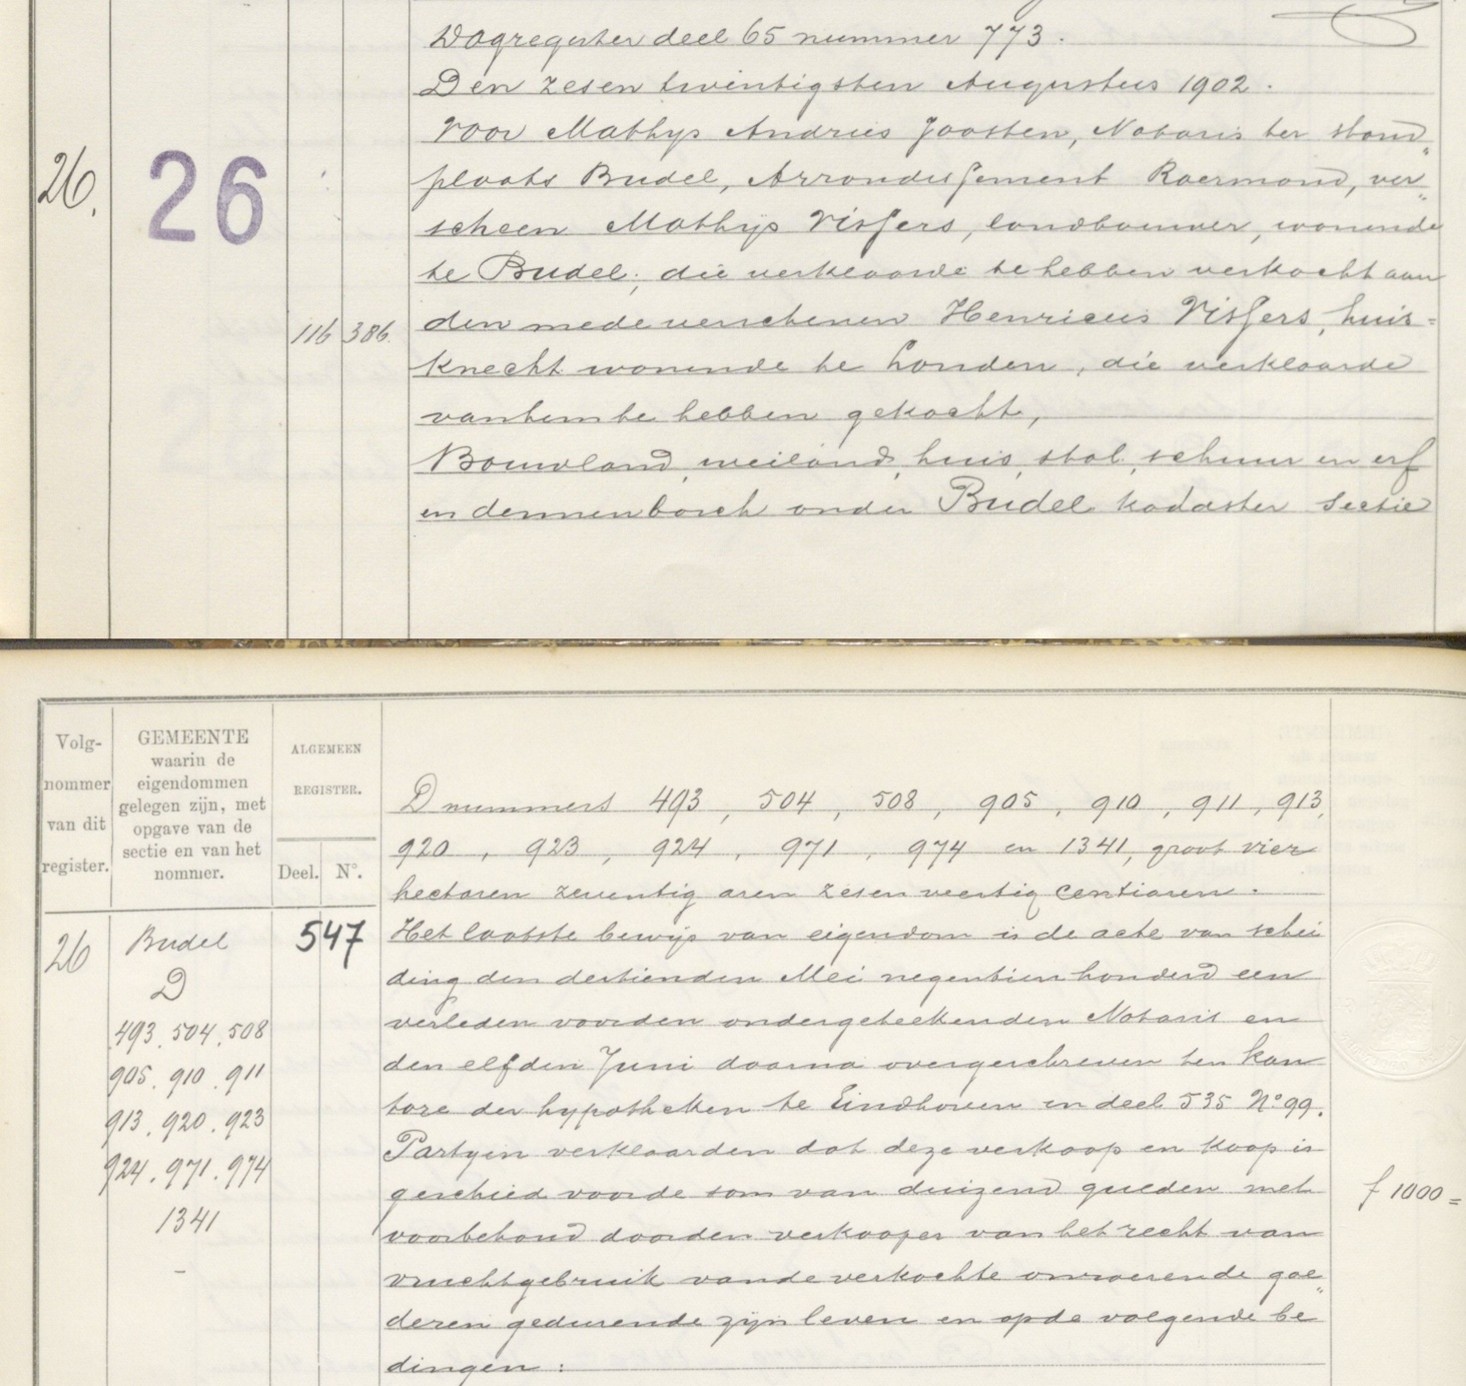 Dagregister deel 65 nummer 773.
Den zesen twintigsten Augustus 1902.
Voor Mathijs Andries Joosten, Notaris ter stand„
26. 26 plaats Budel, Arrondissement Roermond, ver„
scheen Mathijs Vissers, landbouwer, wonende
te Budel; die verklaarde te hebben verkocht aan
116 386. den mede verschenen Henricus Vissers, huis=
knecht wonende te Londen, die verklaarde
van hem te hebben gekocht,
Bouwland, weiland, huis, stal, schuur en erf
en dennenbosch onder Budel kadaster Sectie
Volg-
nommer
van dit
register.
GEMEENTE
waarin de
eigendommen
gelegen zijn, met
opgave van de
sectie en van het
nommer.
ALGEMEEN
REGISTER.
Deel. N°.
D nummers 493, 504, 508, 905, 910, 911, 913,
920, 923, 924, 971, 974 en 1341, groot vier
hectaren zeventig aren zesen veertig centiaren.
26 Budel 547
D
493. 504. 508
905. 910. 911
913. 920. 923
924. 971. 974
1341
–
Het laatste bewijs van eigendom is de acte van schei
ding den dertienden Mei negentien honderd een
verleden voor den ondergeteekenden Notaris en
den elfden Juni daarna overgeschreven ten kan
tore der hypotheken te Eindhoven in deel 535 N° 99.
Partyen verklaarden dat deze verkoop en koop is
geschied voor de som van duizend gulden met
f 1000=
voorbehoud door den verkooper van het recht van
vruchtgebruik van de verkochte onroerende goe„
deren gedurende zijn leven en op de volgende be
dingen: